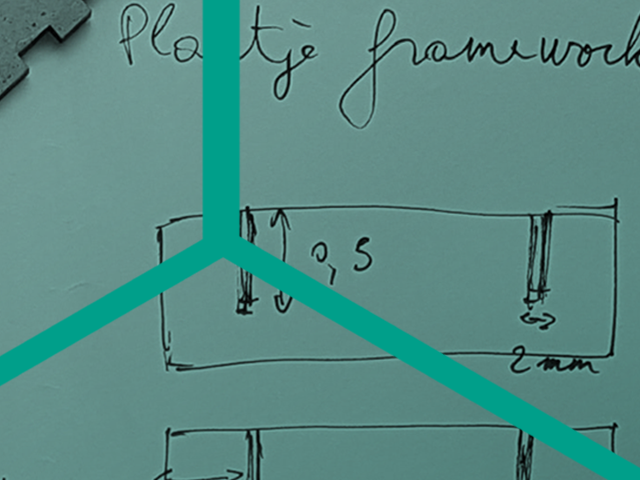 Plaatje framework
0,5
2 mm